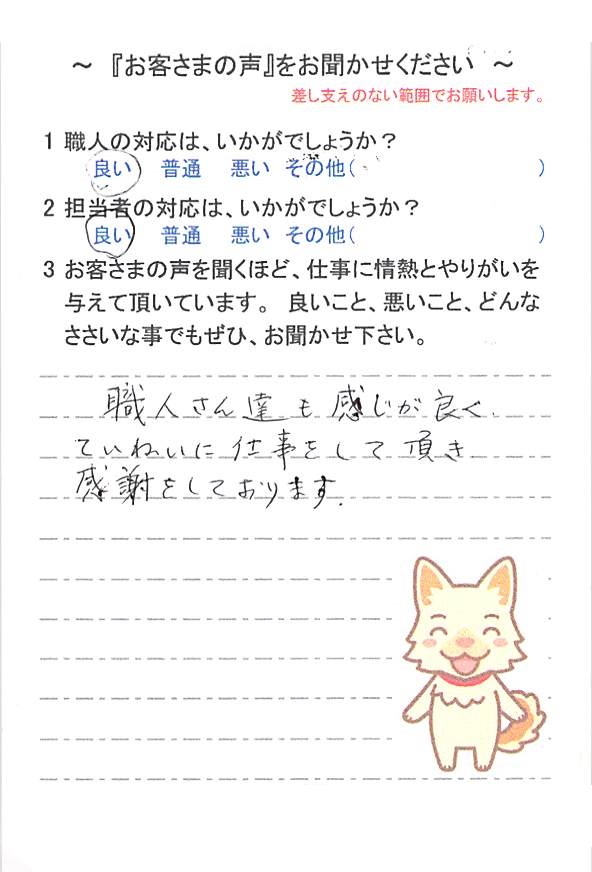 ~ 『お客さまの声』をお聞かせください ~
差し支えのない範囲でお願いします。
1 職人の対応は、いかがでしょうか？
良い 普通 悪い その他( )
2 担当者の対応は、いかがでしょうか？
良い 普通 悪い その他( )
3 お客さまの声を聞くほど、仕事に情熱とやりがいを
与えて頂いています。 良いこと、悪いこと、どんな
ささいな事でもぜひ、お聞かせ下さい。
職人さん達も感じが良く、
ていねいに仕事をして頂き
感謝をしております.